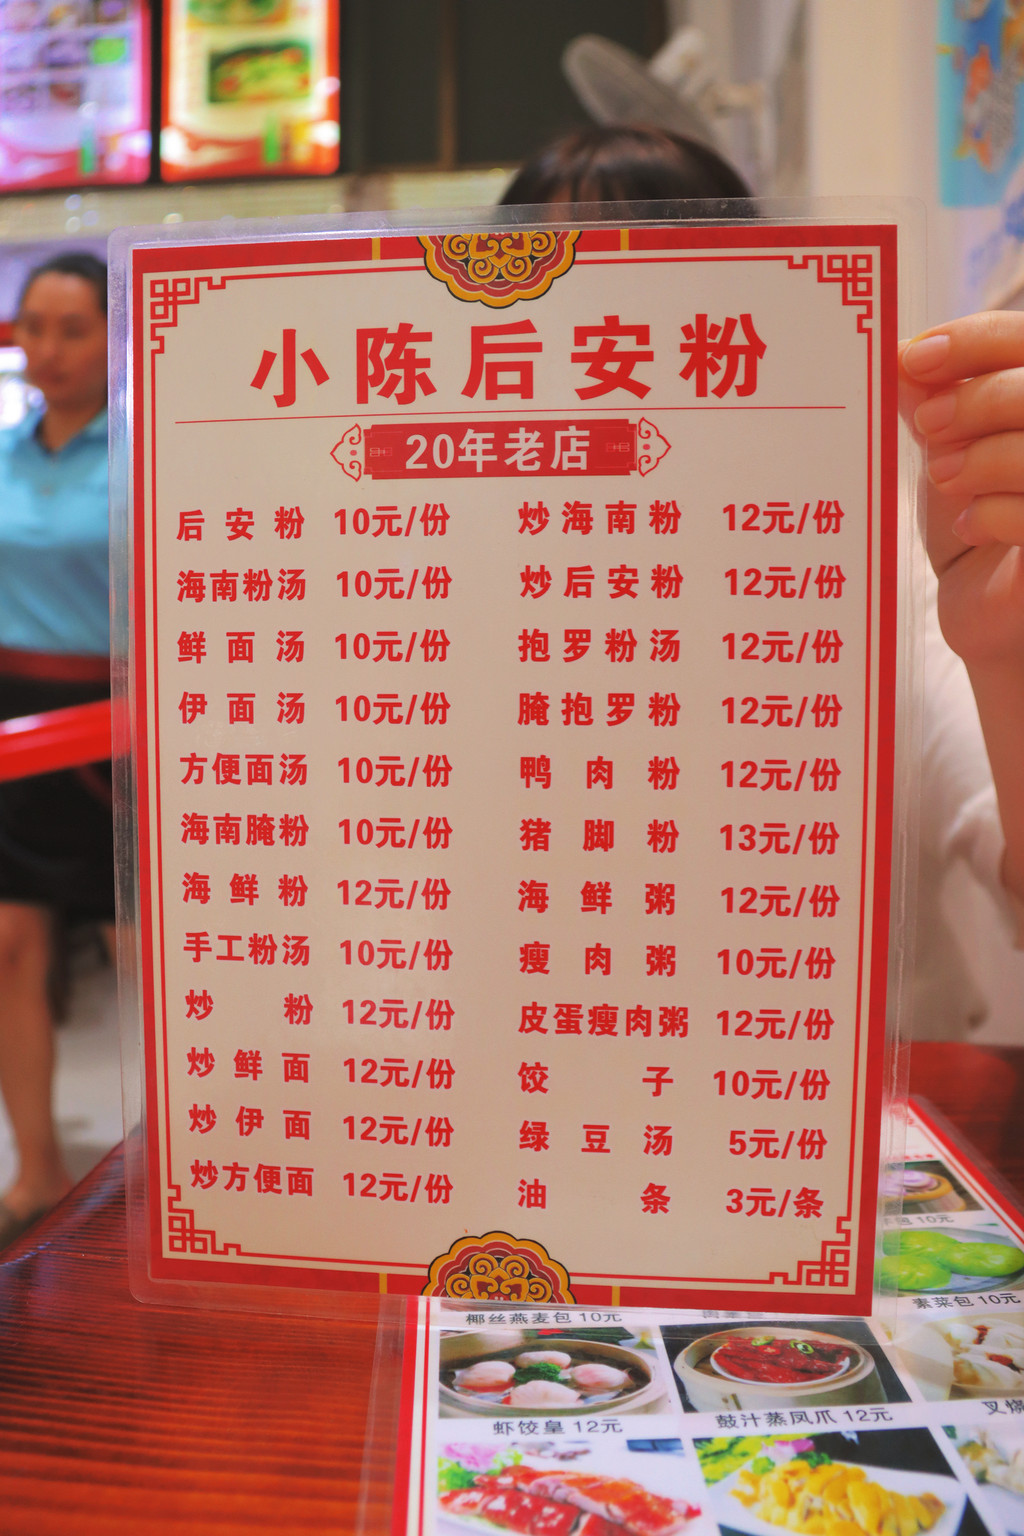 小陈后安粉
20年老店
后安粉 10元/份
海南粉汤 10元/份
鲜面汤 10元/份
伊面汤 10元/份
方便面汤 10元/份
海南腌粉 10元/份
海鲜粉 12元/份
手工粉汤 10元/份
炒粉 12元/份
炒鲜面 12元/份
炒伊面 12元/份
炒方便面 12元/份
炒海南粉 12元/份
炒后安粉 12元/份
抱罗粉汤 12元/份
腌抱罗粉 12元/份
鸭肉粉 12元/份
猪脚粉 13元/份
海鲜粥 12元/份
瘦肉粥 10元/份
皮蛋瘦肉粥 12元/份
饺子 10元/份
绿豆汤 5元/份
油条 3元/条
10元
素菜包 10元
椰丝燕麦包 10元
虾饺皇 12元
鼓汁蒸凤爪 12元
叉烧